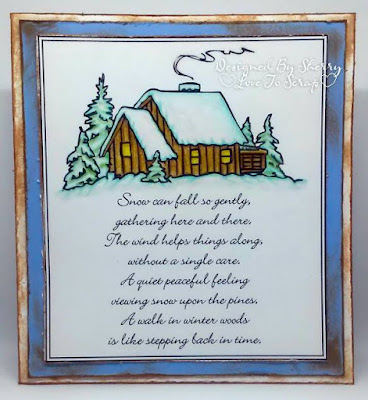 Designed By Sherry
Love To Scrap
Snow can fall so gently,
gathering here and there.
The wind helps things along,
without a single care.
A quiet peaceful feeling
viewing snow upon the pines.
A walk in winter woods
is like stepping back in time.